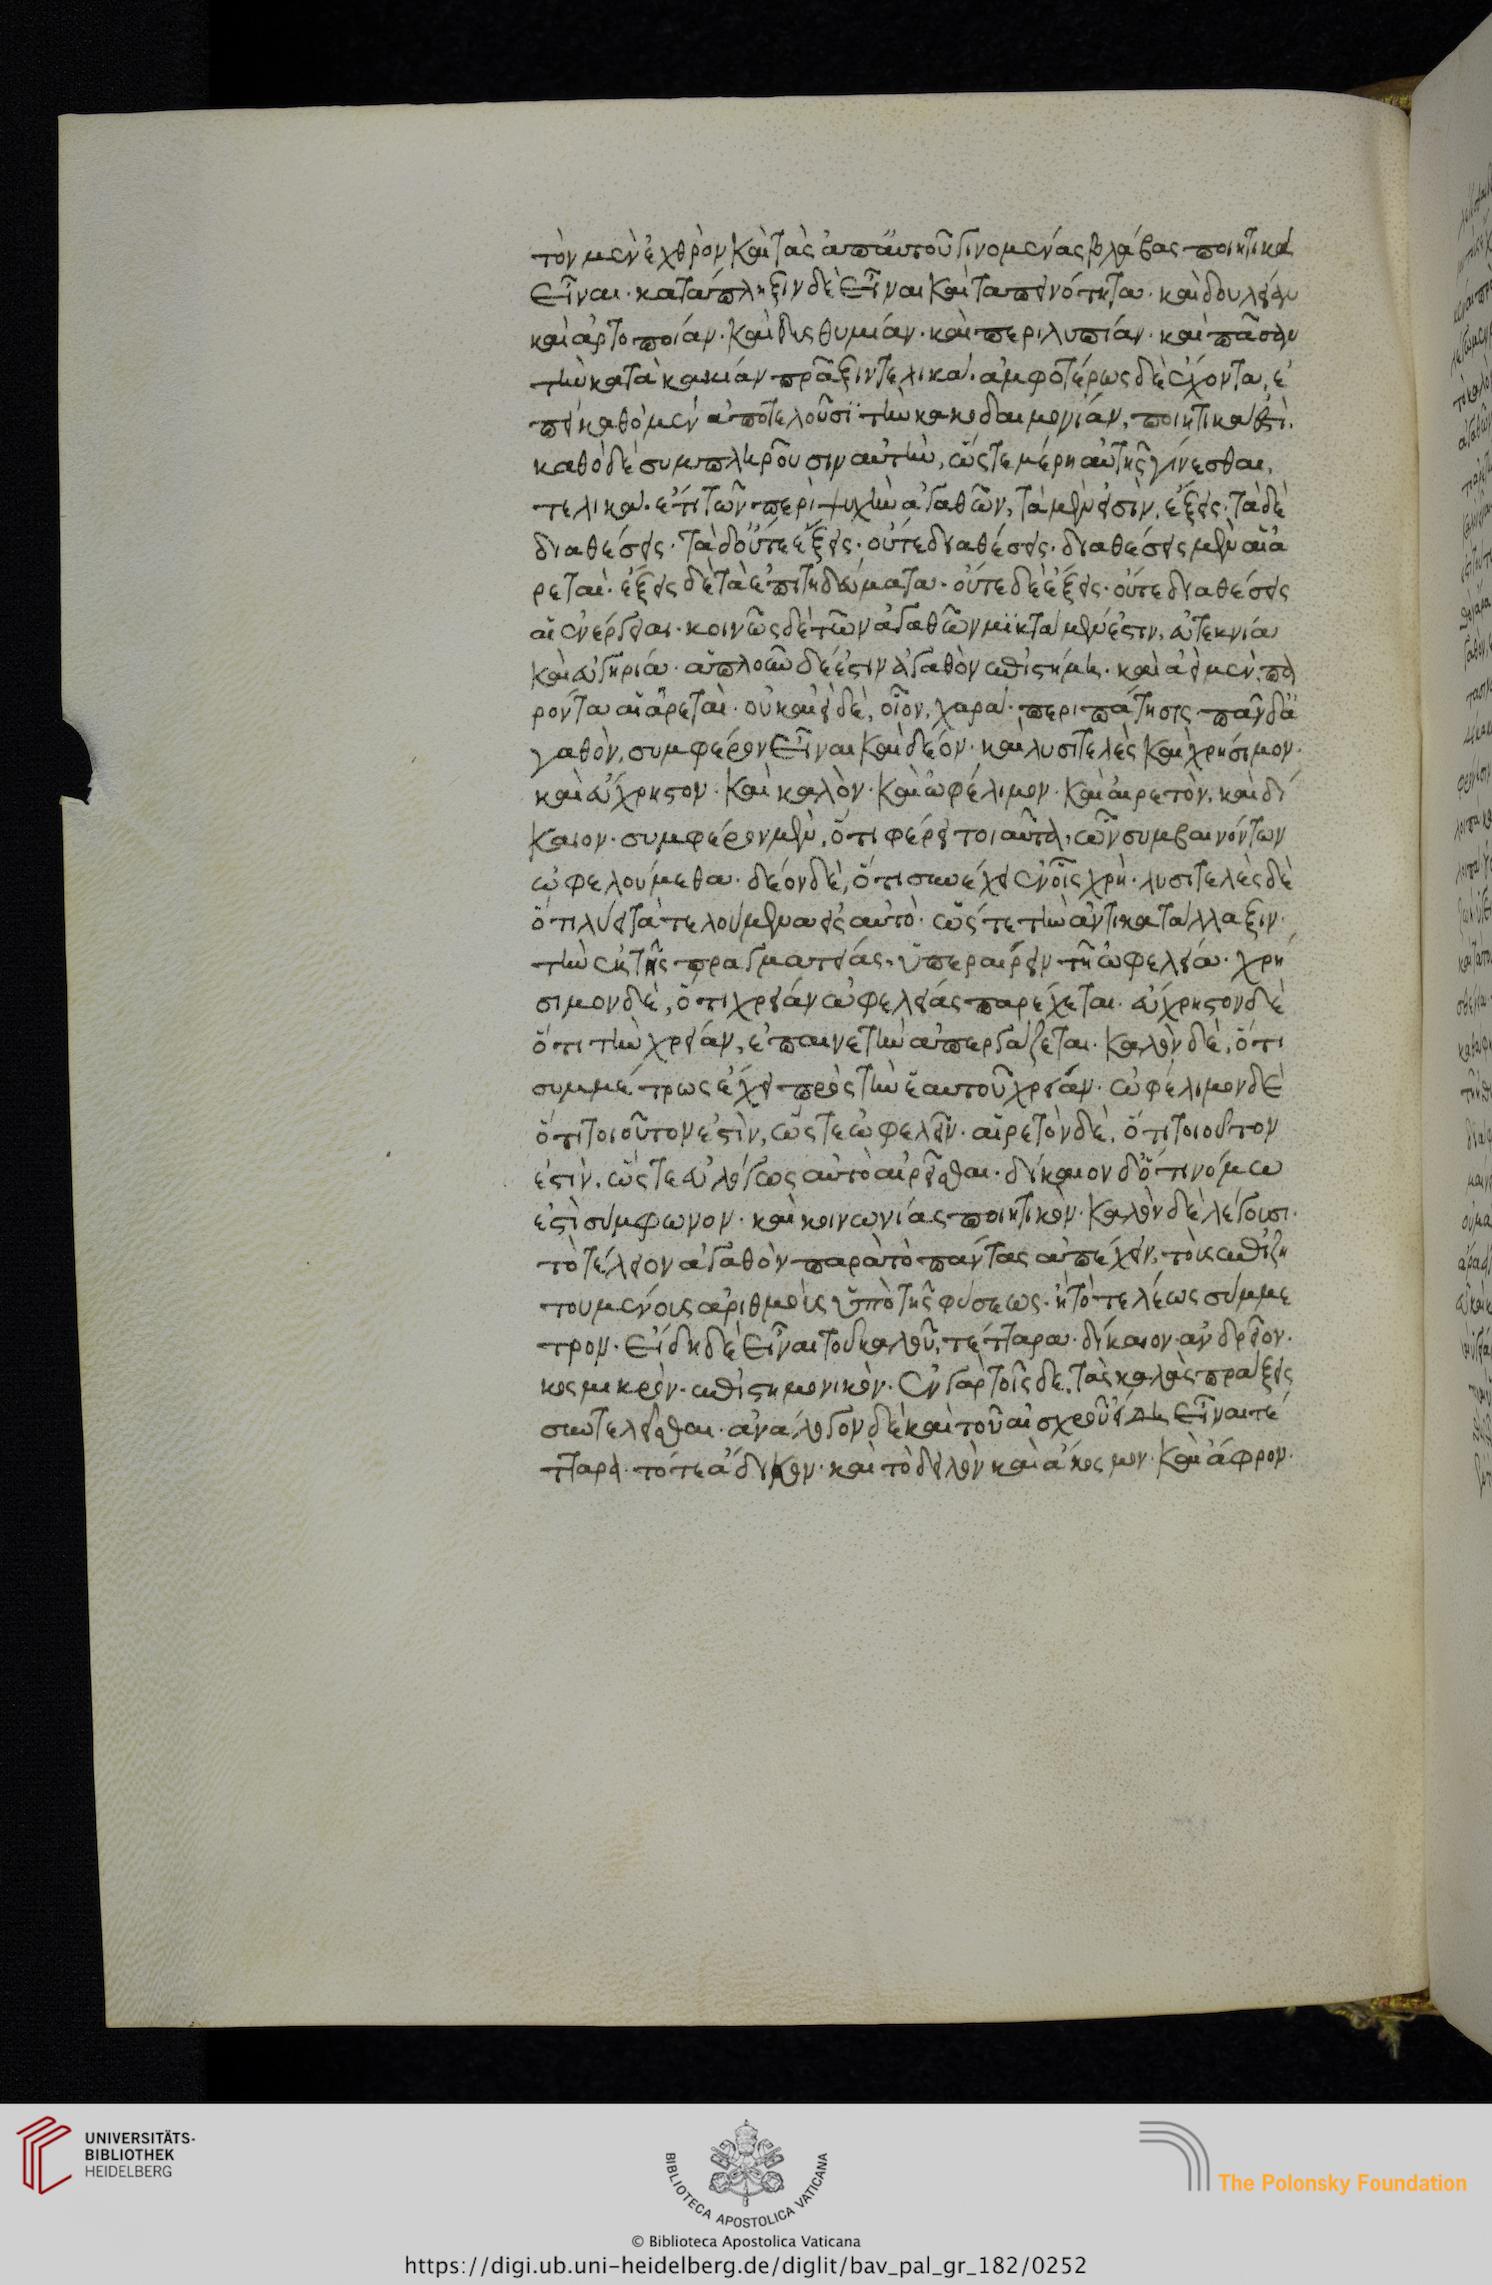 τὸν μὲν ἐχθρὸν καὶ τὰς ἀπ' αὐτοῦ γινομένας βλάβας ποιητικὰ
εἶναι· κατάπληξιν δὲ εἶναι καὶ ταπεινότητα· καὶ δουλείαν
καὶ ἀρτοποιίαν· καὶ δυσθυμίαν· καὶ περιλυπίαν· καὶ πᾶσαν
τὴν κατὰ κακίαν πρᾶξιν τελικά· ἀμφοτέρως δὲ ἔχοντα, ἐ
πεὶ καθὸ μὲν ἀποτελοῦσι τὴν κακοδαιμονίαν, ποιητικά ἐστι.
καθὸ δὲ συμπληροῦσιν αὐτὴν, ὥστε μέρη αὐτῆς γίνεσθαι,
τελικά· ἔτι τῶν περὶ ψυχὴν ἀγαθῶν, τὰ μὲν εἰσὶν, ἕξεις· τὰ δὲ
διαθέσεις· τὰ δ' οὔτε ἕξεις· οὔτε διαθέσεις· διαθέσεις μὲν αἱ ἀ
ρεταὶ· ἕξεις δὲ τὰ ἐπιτηδεύματα· οὔτε δὲ ἕξεις· οὔτε διαθέσεις
αἱ ἐνέργειαι· κοινῶς δὲ τῶν ἀγαθῶν μικτὰ μέν ἐστιν, εὐτεκνία
καὶ εὐγηρία· ἁπλοῦν δέ ἐστιν ἀγαθὸν ἐπιστήμη· καὶ ἀεὶ μὲν πα
ρόντα αἱ ἀρεταὶ· οὐκ ἀεὶ δὲ, οἷον, χαρά· περιπάτησις πᾶν δ' ἀ
γαθὸν, συμφέρον εἶναι καὶ δέον· καὶ λυσιτελὲς καὶ χρήσιμον·
καὶ εὔχρηστον· καὶ καλὸν· καὶ ὠφέλιμον· καὶ αἱρετὸν, καὶ δί
καιον· συμφέρον μὲν, ὅτι φέρει τοιαῦτα, ὧν συμβαινόντων
ὠφελούμεθα· δέον δὲ, ὅτι συνέχει ἐν οἷς χρή· λυσιτελὲς δὲ
ὅτι λύει τὰ τελούμενα εἰς αὐτὸ· ὥστε τὴν ἀντικατάλλαξιν·
τὴν ἐκ τῆς πραγματείας· ὑπεραίρειν τῇ ὠφελείᾳ· χρή
σιμον δὲ, ὅτι χρείαν ὠφελείας παρέχεται· εὔχρηστον δὲ
ὅτι τὴν χρείαν, ἐπαινετὴν ἀπεργάζεται· καλὸν δὲ, ὅτι
συμμέτρως ἔχει πρὸς τὴν ἑαυτοῦ χρείαν· ὠφέλιμον δὲ
ὅτι τοιοῦτον ἐστὶν, ὥστε ὠφελεῖν· αἱρετὸν δὲ, ὅτι τοιοῦτον
ἐστὶν, ὥστε εὐλόγως αὐτὸ αἱρεῖσθαι· δίκαιον δ' ὅτι νόμω
ἐστὶ σύμφωνον· καὶ κοινωνίας ποιητικὸν· καλὸν δὲ λέγουσι·
τὸ τέλειον ἀγαθὸν παρὰ τὸ πάντας ἀπέχειν, τοὺς ἐπιζη
τουμένοις ἀριθμοὶς ὑπὸ τῆς φύσεως· ἢ τὸ τελέως σύμμε
τρον· εἴδη δὲ εἶναι τοῦ καλοῦ, τέτταρα· δίκαιον· ἀνδρεῖον·
κοσμικρὸν· ἐπιστημονικὸν· ἐν γὰρ τοῖς δε, τὰς καλὰς πράξεις
συντελεῖσθαι· ἀνάλογον δὲ καὶ τοῦ αἰσχροῦ εἴδη εἶναι τέ
τταρα· τό τε ἄδικον· καὶ τὸ δειλὸν καὶ ἄκοσμον· καὶ ἄφρον·
UNIVERSITÄTS-
BIBLIOTHEK
HEIDELBERG
BIBLIOTECA APOSTOLICA VATICANA
The Polonsky Foundation
© Biblioteca Apostolica Vaticana
https://digi.ub.uni-heidelberg.de/diglit/bav_pal_gr_182/0252